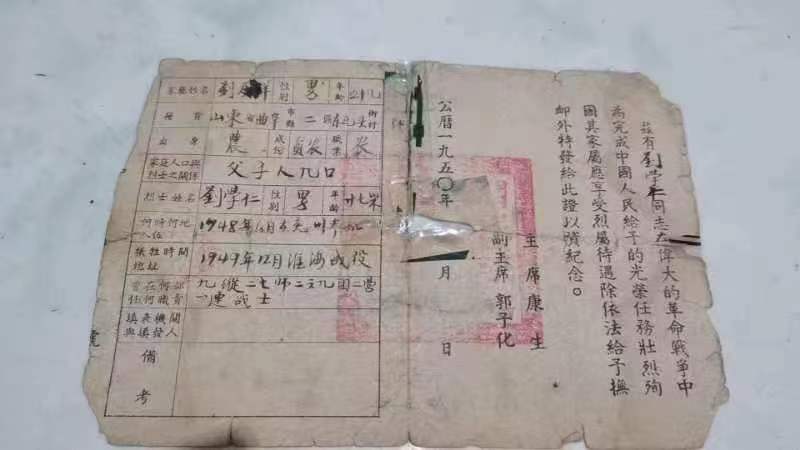 茲有劉學仁同志在偉大的革命戰爭中
為完成中國人民給予的光榮任務壯烈殉
國其家屬應享受烈屬待遇除依法給予撫
卹外特發給此證以資紀念。
主席康生
副主席郭子化
公曆一九五〇年 月 日
家屬姓名 劉 祥 性別 男 年齡
籍貫 山東省曲阜市縣二區 街村
出身 農 成份 貧农 職業 农
家庭人口與烈士之關係 父子人九口
烈士姓名 劉學仁 性別 男 年齡
何時何地入伍 1948年 月
犧牲時間地址 1949年12月淮海战役
曾在何部任何職責 九縱二七师 团二营
连战士
填表機關與填發人
備考